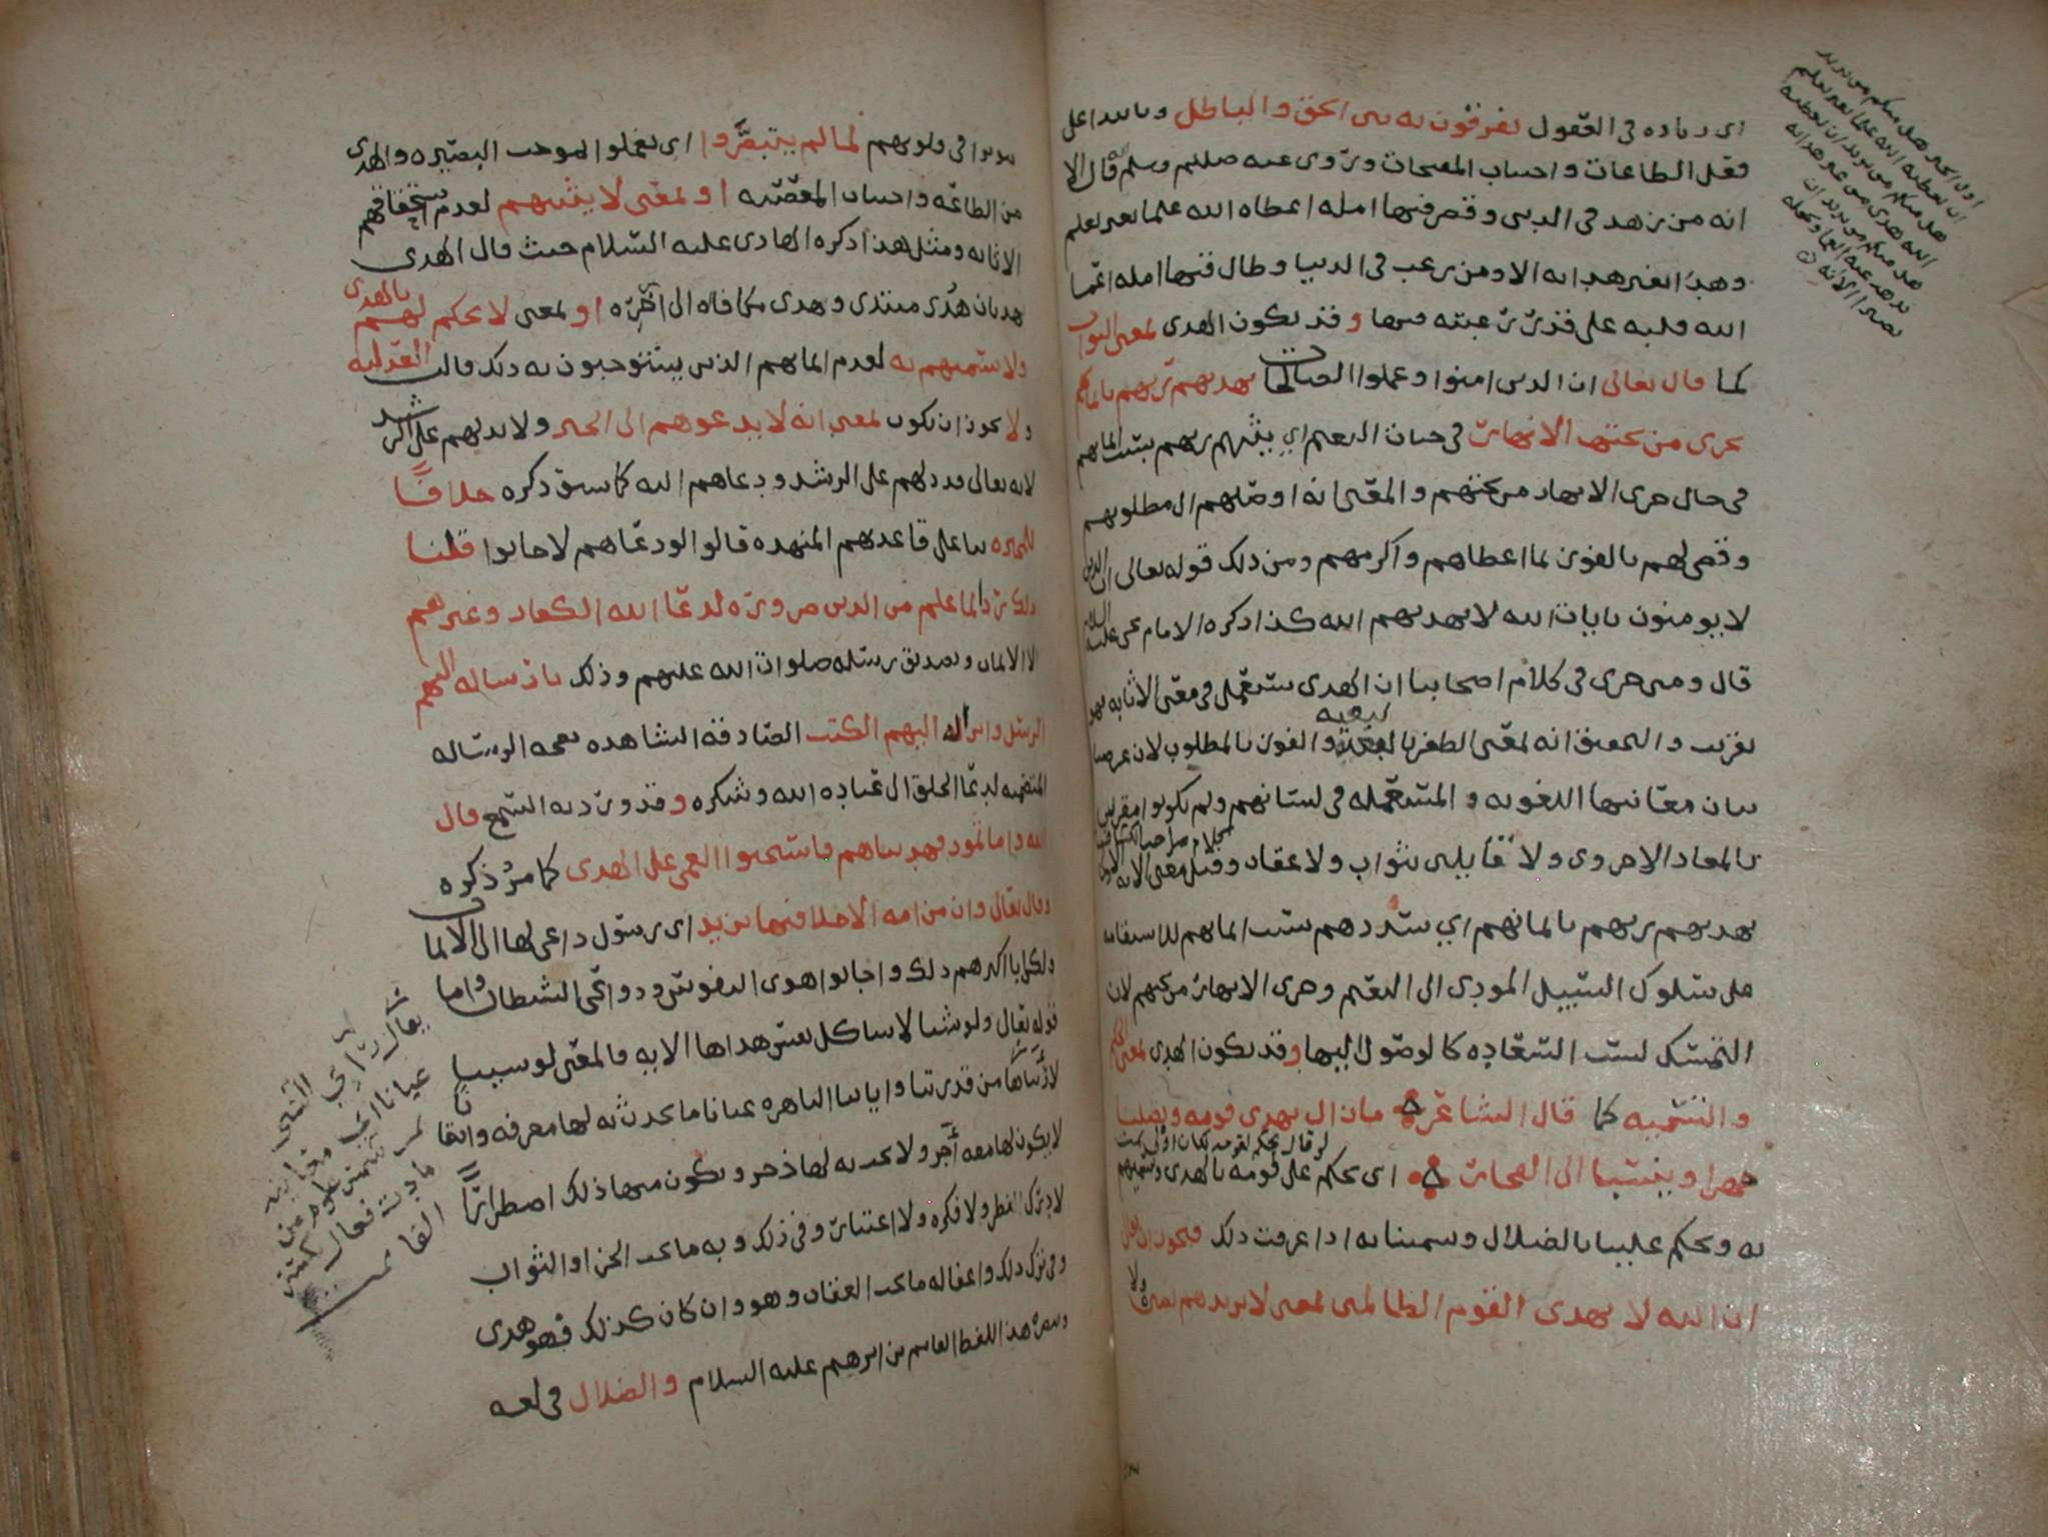 اى زياده في العقول يفرقون به بين الحق والباطل وباعدا على
فعل الطاعات واجتناب المقبحات وروى عنه صلى الله عليه وسلم قال الا
انه من زهد في الدنيا وقصر فيها امله اعطاه الله علما بغير تعلم
وهدًا بغير هدايه الا ومن رغب في الدنيا وطال فيها امله اعما
الله قلبه على قدر رغبته فيها وقد يكون الهدى بمعنى الثواب
كما قال تعالى ان الذين امنوا وعملوا الصالحات يهديهم ربهم بايمانهم
تجرى من تحتها الانهار في جنات النعيم اي يثيبهم ربهم بسبب ايمانهم
في حال جرى الانهار من تحتهم والمعنى انه اوصلهم الى مطلوبهم
وقضى لهم بالفوز بما اعطاهم واكرمهم ومن ذلك قوله تعالى ان الذين
لا يومنون بايات الله لا يهديهم الله كذا ذكره الامام يحيى عليه السلام
قال ومتى جرى في كلام اصحابنا ان الهدى يستعمل في معنى الاثابه فهو
تقريب والتحقيق انه بمعنى الظفر بالبغيه والفوز بالمطلوب لان غرضنا
بيان معانيها اللغويه والمستعمله في لسانهم ولم يكونوا مقرين
بالمعاد الاخروى ولا قايلين بثواب ولا عقاب وقيل معنى الايه الاولى
كلام صاحب الكشاف
يهديهم ربهم بايمانهم اي يسددهم بسبب ايمانهم للاستقامه
على سلوك السبيل المودي الى النعيم وجرى الانهار من تحتهم لان
التمسك بسبب السعاده كالوصول اليها وقد يكون الهدى بمعنى الحكم
والتسميه كما قال الشاعر ما زال يهدى قومه ويضلنا
جهرا وينسبنا الى الفجار اى يحكم على قومه بالهدى وتسميتهم
به ويحكم علينا بالضلال وسمينا به اذا عرفت ذلك فيجوز ان يقال
ان الله لا يهدى القوم الظالمين بمعنى لا يزيدهم بصيره ولا
في قلوبهم لما لم يتبصَّروا اى يفعلوا الموجب البصيره والهدى
من الطاعه واجتناب المعصيه او بمعنى لا يثيبهم لعدم استحقاقهم
الاثابه ومثل هذا ذكره الهادى عليه السلام حيث قال الهدى
هديان هُدًى مبتدى وهدى مكافاه الى آخره او بمعنى لا يحكم لهم بالهدى
ولا يسميهم به لعدم ايمانهم الذى يستوجبون به ذلك قالت العدليه
ولا يجوز ان يكون بمعنى انه لا يدعوهم الى الخير ولا يدلهم على الرشد
لانه تعالى قد دلهم على الرشد ودعاهم اليه كما سبق ذكره خلافًا
للمجبره بنا على قاعدتهم المنهده قالوا لو دعاهم لاجابوا قلنا
ذلك رد لما علم من الدين ضروره لدعا الله الكفار وغيرهم
الا الايمان وتصديق رسله صلوات الله عليهم وذلك بارساله اليهم
الرسل وانزاله اليهم الكتب الصادقه الشاهده بصحه الرساله
المتضمنه لدعا الخلق الى عباده الله وشكره وقد ورد به السمع قال
الله واما ثمود فهديناهم فاستحبوا العمى على الهدى كما مرّ ذكره
وقال تعالى وان من امه الا خلا فيها نذير اى رسول داعى لها الى الايمان
ولكن ابا اكثرهم ذلك واجابوا هوى النفوس ودواعى الشيطان واما
قوله تعالى ولو شينا لاتينا كل نفس هداها الايه فالمعنى لو شيينا
لاريناها من قدرتنا واياتنا الباهره عيانا ما يحدث به لها معرفه وايقا
لا يكون لها معه أجر ولا يجب به لها ذخر ويكون منها ذلك اضطرارًا
لا يدرك بنظر ولا فكره ولا اعتبار وفي ذلك وبه ما يجب الجزا والثواب
وفي ترك ذلك واغفاله ما يجب العقاب وهو وان كان كذلك فهو هدى
وفسره هذا اللفظ القاسم بن ابرهيم عليه السلام والضلال في لغه